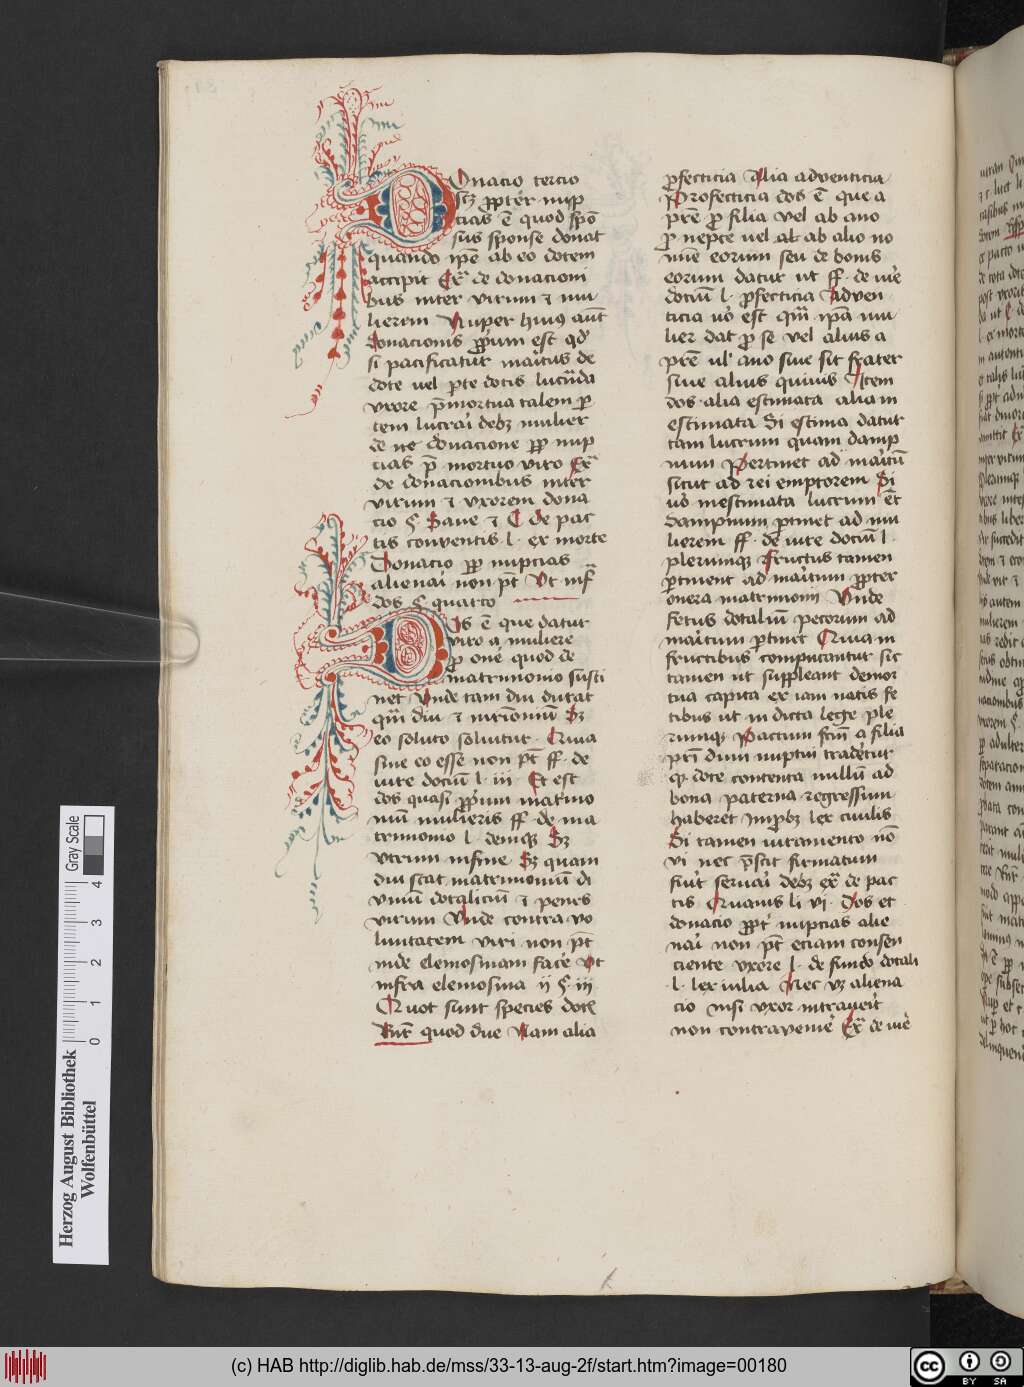 Donacio tercio
scꝫ ꝓpter nup
cias ē quod spō
sus sponse donat
quando ip̄e ab eo dotem
accipit Exͣ de donacioni
bus inter virum ⁊ mu
lierem Nuper huiꝰ aūt
donacionis ꝓpͥum est qd'
si pacificatur maͥtus de
dote uel ꝑte dotis lucͣnda
vxore p̄mortua talem ꝑ
tem lucraͥ debꝫ mulier
de ne donacione ꝓp nup
cias p̄ mortuo viro Exͣ
de donacionibus inter
virum ⁊ vxorem dona
cio § Sane ⁊ C de pac
tis conventis l. ex morte
Donacio ꝓp nupcias
alienaͥ non pt̄ Vt infͣ
dos § quarto
Dos ē que datur
viro a muliere
ꝓ one' quod de
matrimonio susti
net Vnde tam diu durat
qͣm diu ⁊ mr̄iomū Sꝫ
eo soluto soluitur. Quia
sine eo esse non pt̄ ff. de
iure dociū l. iii Et est
dos quasi ꝓpͥum matͥmo
niū mulieris ff. de ma
trimonio l. deniqꝫ Sꝫ
vtrum infine Sꝫ quam
diu stat matrimoniū di
uinū dotaliciū ⁊ penes
virum Vnde contra vo
luntatem viri non pt̄
inde elemosinam face' Vt
infra elemosina ij § iij
Quot sunt species doti
Rn̄t quod due Nam alia
ꝓfecticia Alia adventicia
Profecticia dos ē que a
pr̄e ꝓ filia vel ab auo
ꝓ nepte uel ab alio no
mīe eorum seu de bonis
eorum datur ut ff. de iur̄e
dociū l. ꝓfecticia Adven
ticia uͦ est qͣm ip̄a mu
lier dat ꝓ se vel alius a
pr̄e ul' auo siue sit frater
siue alius quiuis Item
dos alia estimata alia in
estimata Si estima datur
tam lucrum quam damp
num Pertinet ad maͥtū
sicut ad rei emptorem Si
uͦ inestimata lucrum et̄
dampnum ꝑtinet ad mu
lierem ff. de iure dociū l.
plerumqꝫ Fructus tamen
ꝑtinent ad maͥtum ꝓpter
onera matrimonij Vnde
fetus dotaliū pecorum ad
maͥtum ꝑtinet Quia in
fructibus computantur sic
tamen ut suppleant demor
tua capita ex iam natis fe
tibus ut in dicta lege ple
rumqꝫ Pactum fcm̄ a filia
pr̄i dum nuptui tradetur
qꝫ dote contenta nullū ad
bona paterna regressum
haberet Improbꝫ lex ciuilis
Si tamen iuramento nō
vi nec p̄stit firmatum
fuit seruaͥ debꝫ exͣ de pac
tis Qͣmuis li vi. Dos et
donacio ꝓpt' nupcias alie
naͥ non pt̄ eciam consen
ciente vxore l. de fundo dotali
l. lex iulia Nec vꝫ aliena
cio nisi vxor intraueͥt
non contravenir̄e Exͣ de iur̄e
Herzog August Bibliothek
Wolfenbüttel
0 1 2 3 4
Gray Scale
(c) HAB http://diglib.hab.de/mss/33-13-aug-2f/start.htm?image=00180
cc BY SA